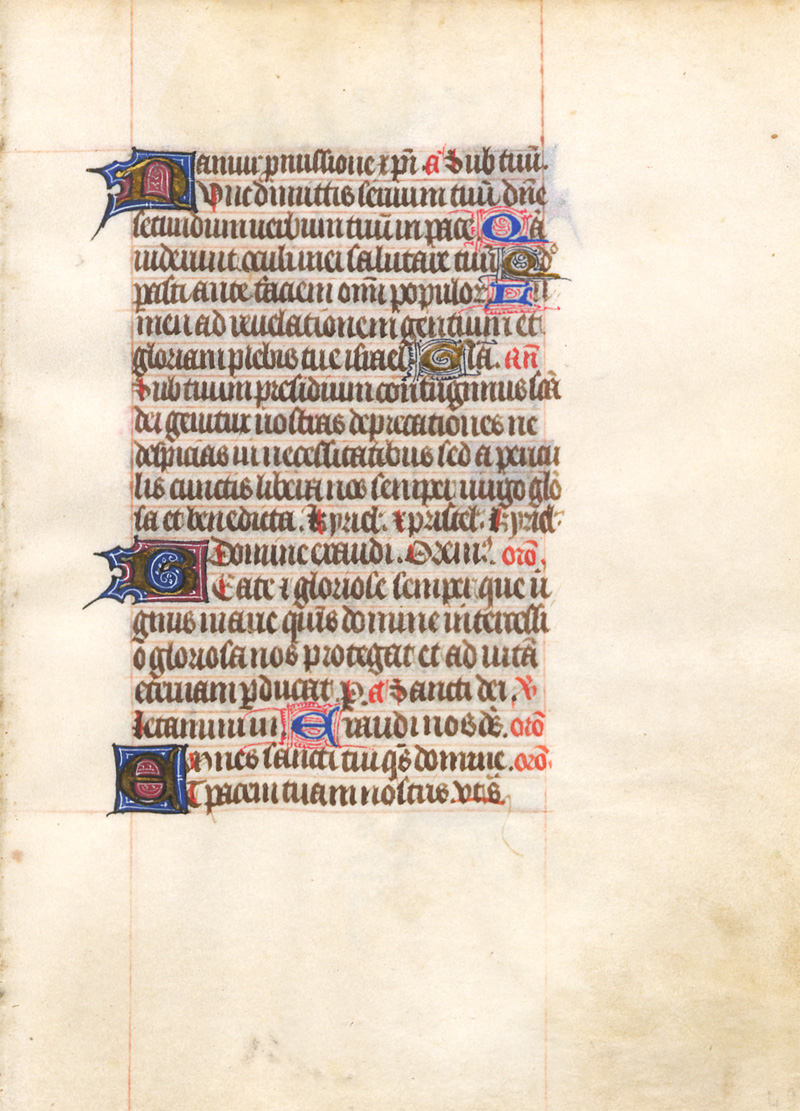 amur p̱missione xp̄i. a Sub tuū.
Nunc dimittis seruum tuū dn̄e
secundum uerbum tuū in pace Quā
uiderunt oculi mei salutare tuū Qd̄
pasti ante faciem omī populor Lu
men ad reuelationem gentium et
gloriam plebis tue israel Glā. an̄
Sub tuum presidium confugimus sc̄a
dei genitrix nostras deprecationes ne
despicias in necessitatibus sed a pericu
lis cunctis libera nos semper uirgo glo
sa et benedicta. kyriel. xpristel. kyriel.
Domine exaudi. Orem9. oro.
Beate ⁊ gloriose semper que ui
ginis marie quis domine intercessi
o gloriosa nos protegat et ad uitā
eternam p̱ducat. P. a Sancti dei. V̄
letamini in Exaudi nos ds̄. oro
mnes sancti tui qs̄ domine. oro.
Et pacem tuam nostris. vt s̄.